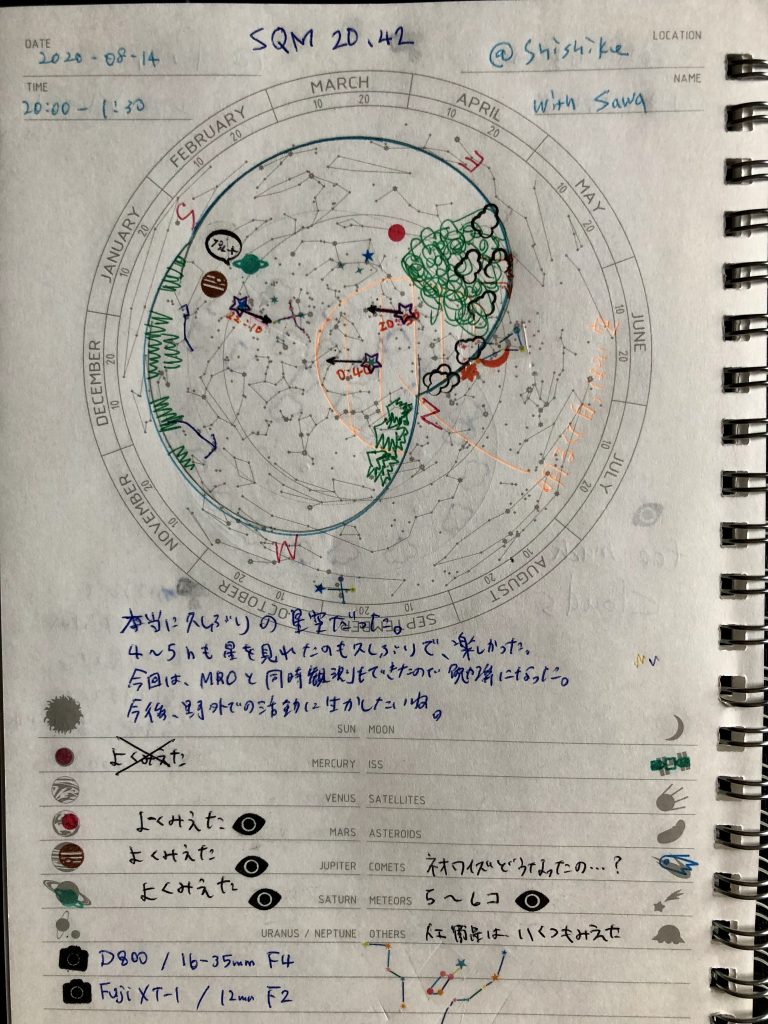 DATE
2020-08-14
SQM 20.42
LOCATION
@ Shishiku
TIME
20:00 - 1:30
NAME
with Sawa
JANUARY
10
20
FEBRUARY
10
20
MARCH
10
20
APRIL
10
20
MAY
10
20
JUNE
10
20
JULY
10
20
AUGUST
10
20
SEPTEMBER
10
20
OCTOBER
10
20
NOVEMBER
10
20
DECEMBER
10
20
E
S
N
W
22:10
20:50
0:40
本当に久しぶりの星空だった。
4〜5hも星を見れたのも久しぶりで、楽しかった。
今回は、MROと同時観測もできたので勉強になった。
今後、野外での活動に生かしたいね。
SUN MOON
よくみえた
MERCURY ISS
VENUS SATELLITES
よ〜くみえた
MARS ASTEROIDS
よくみえた
JUPITER COMETS ネオワイズどうなったの…?
よくみえた
SATURN METEORS 5〜6コ
URANUS / NEPTUNE OTHERS 人工衛星はいくつもみえた
D800 / 16-35mm F4
Fuji XT-1 / 12mm F2